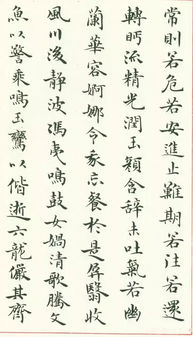 常則若危若安進止難期若往若還
轉眄流精光潤玉顏含辭未吐氣若幽
蘭華容婀娜令我忘餐於是屏翳收
風川後靜波馮夷鳴鼓女媧清歌騰文
魚以警乘鳴玉鸞以偕逝六龍儼其齊